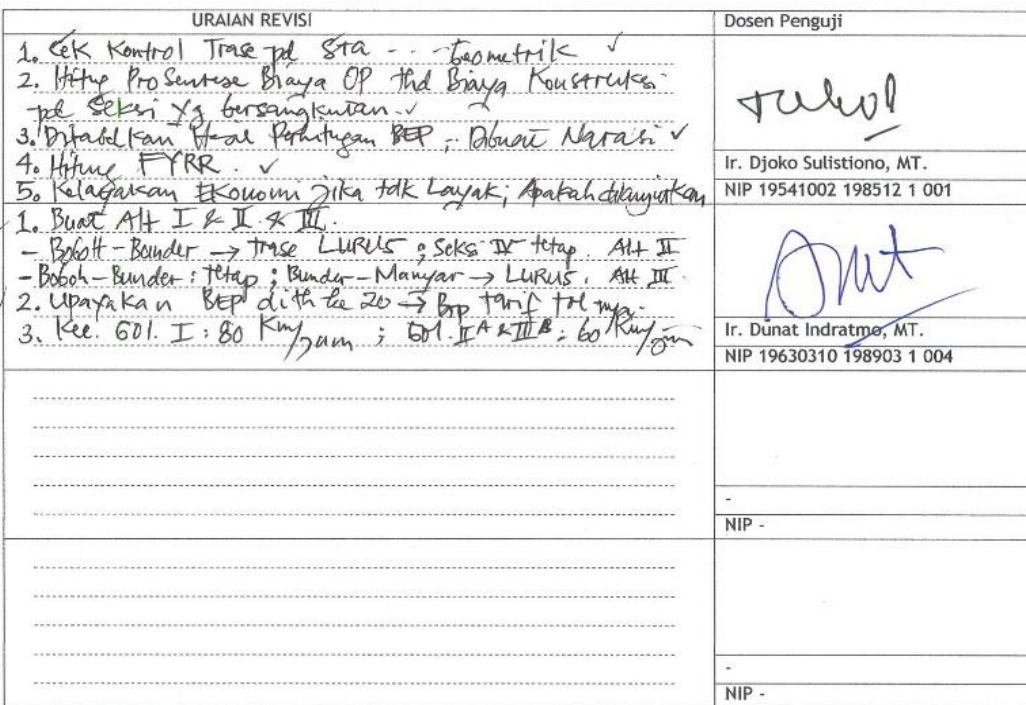 URAIAN REVISI
Dosen Penguji
1. Cek Kontrol Trase pd STA - - - Geometrik ✓
2. Hitung Prosentase Biaya OP thd Biaya Konstruksi
pd Seksi Yg bersangkutan. ✓
3. Ditabelkan Hasil Perhitungan BEP ; Dibuat Narasi ✓
4. Hitung FYRR. ✓
5. Kelayakan Ekonomi Jika tdk Layak; Apakah dilanjutkan
Ir. Djoko Sulistiono, MT.
NIP 19541002 198512 1 001
1. Buat Alt I & II & III.
- Boboh - Bunder → Trase LURUS ; Seksi IV tetap. Alt II
- Boboh - Bunder : tetap ; Bunder - Manyar → LURUS. Alt III.
2. Upayakan BEP di th ke 20 → Brp tarif tol nya.
3. Kec. Gol. I : 80 Km/jam ; Gol. II A & II B : 60 Km/jam
Ir. Dunat Indratmo, MT.
NIP 19630310 198903 1 004
-
NIP -
-
NIP -